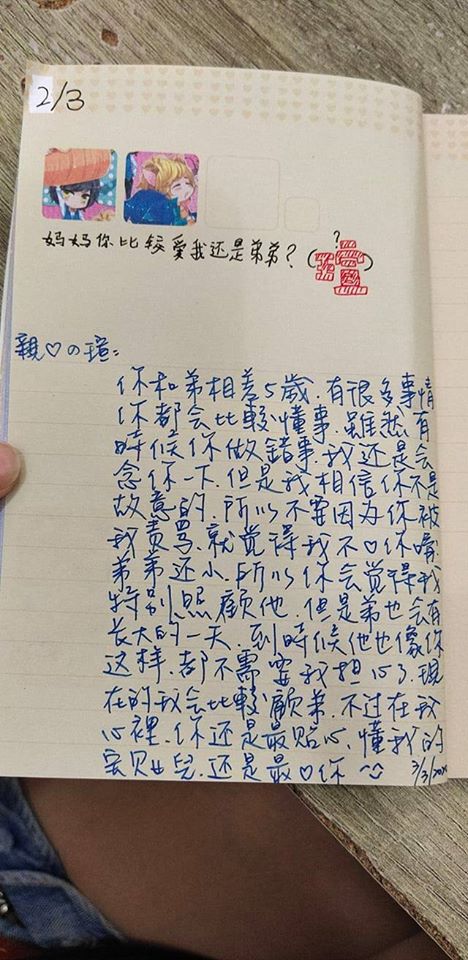 2/3
妈妈你比较爱我还是弟弟?(?瑄)
親♡の瑄:
你和弟相差5歲.有很多事情
你都会比較懂事.雖然有
時候你做錯事.我还是会
念你一下.但是我相信你不是
故意的.所以不要因为你被
我責骂.就觉得我不♡你嘴.
弟弟还小.所以你会觉得我
特别照顧他.但是弟也会有
长大的一天.到時候他也像你
这样.都不需要我担心了.現
在的我会比較顧弟.不过在我
心裡.你还是最贴心.懂我的
宝贝女兒.还是最♡你
3/3/20